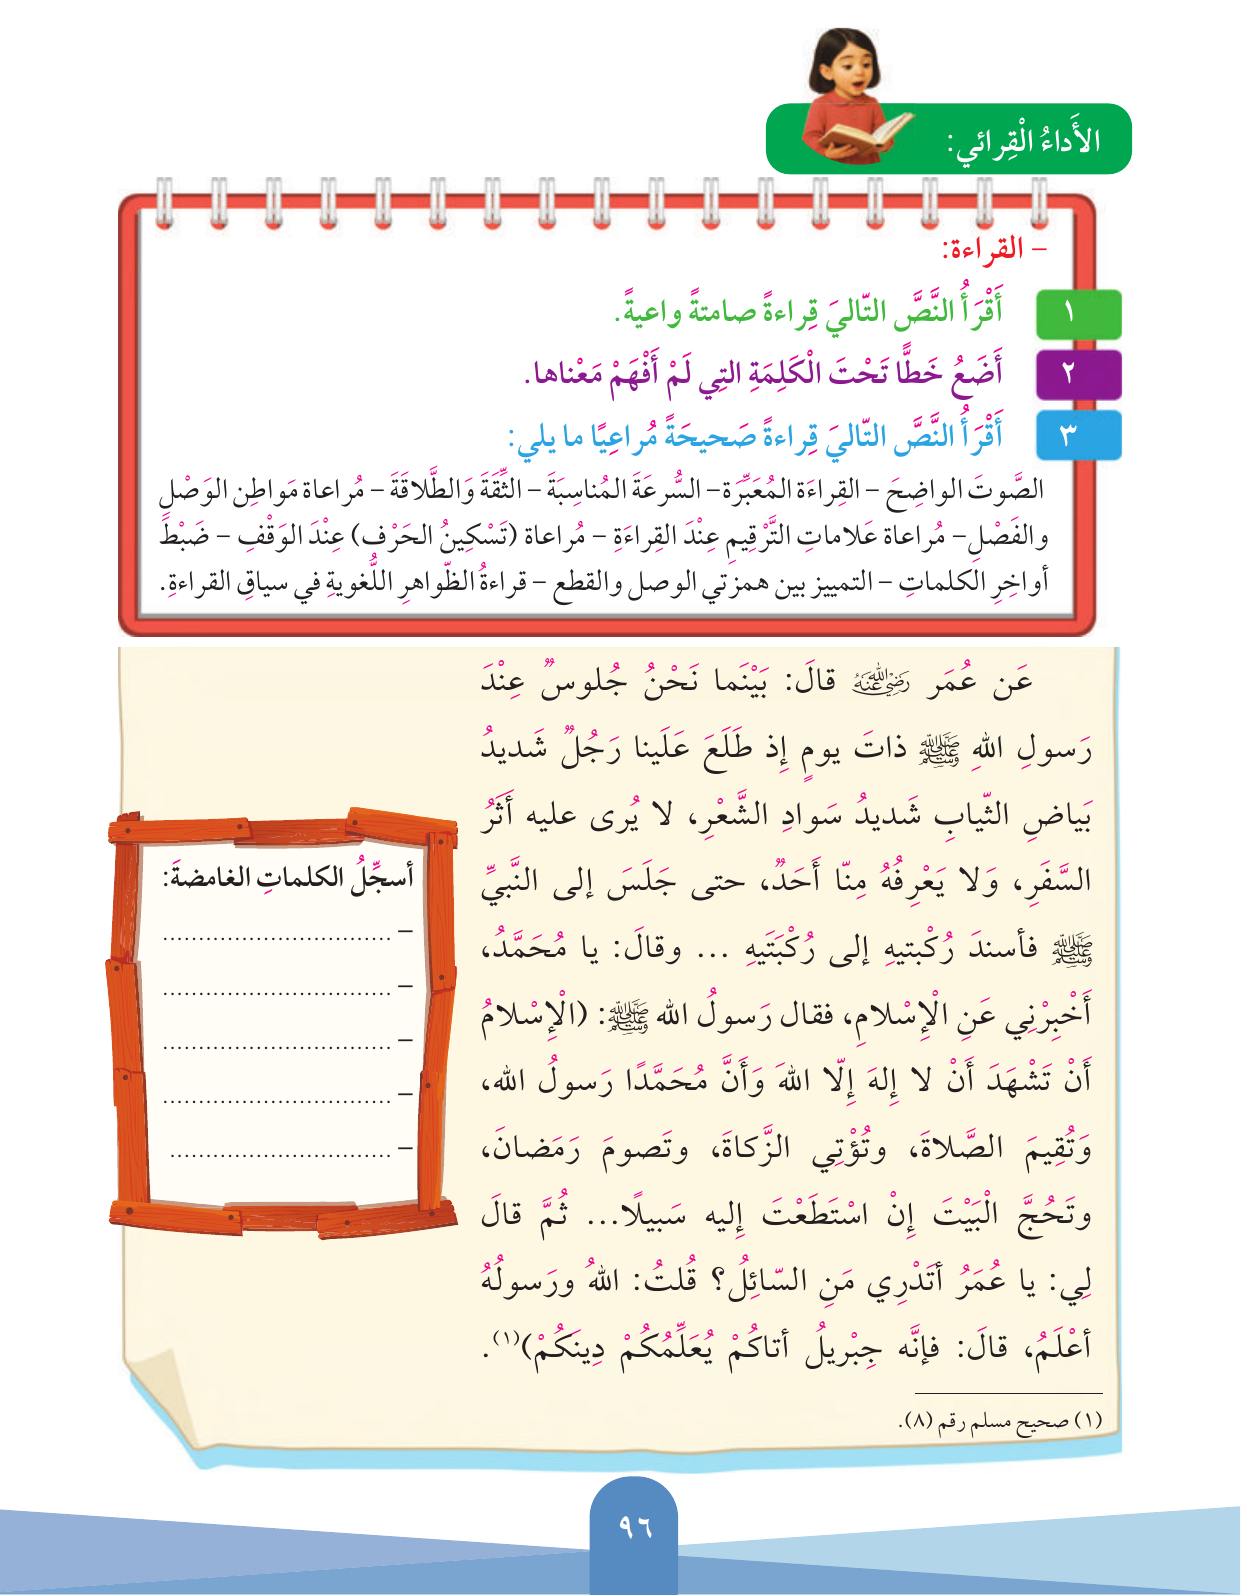 الأَداءُ الْقِرائي:
– القراءة:
١ أَقْرَأُ النَّصَّ التّاليَ قِراءةً صامتةً واعيةً.
٢ أَضَعُ خَطًّا تَحْتَ الْكَلِمَةِ التِي لَمْ أَفْهَمْ مَعْناها.
٣ أَقْرَأُ النَّصَّ التّاليَ قِراءةً صَحيحَةً مُراعِيًا ما يلي:
الصَّوتَ الواضِحَ – القِراءَة المُعَبِّرَة – السُّرعَةَ المُناسِبَةَ – الثِّقَةَ وَالطَّلاقَةَ – مُراعاة مَواطِن الوَصْلِ
والفَصْلِ – مُراعاة عَلاماتِ التَّرْقيمِ عِنْدَ القِراءَةِ – مُراعاة (تَسْكِينُ الحَرْف) عِنْدَ الوَقْفِ – ضَبْطَ
أواخِرِ الكلماتِ – التمييز بين همزتي الوصل والقطع – قراءةُ الظّواهرِ اللُّغويةِ في سياقِ القراءةِ.
عَن عُمَر رضي الله عنه قالَ: بَيْنَما نَحْنُ جُلوسٌ عِنْدَ
رَسولِ اللهِ ﷺ ذاتَ يومٍ إِذ طَلَعَ عَلَينا رَجُلٌ شَديدُ
بَياضِ الثّيابِ شَديدُ سَوادِ الشَّعْرِ، لا يُرى عليه أَثَرُ
السَّفَرِ، وَلا يَعْرِفُهُ مِنّا أَحَدٌ، حتى جَلَسَ إلى النَّبيِّ
ﷺ فأسندَ رُكْبتيهِ إلى رُكْبَتَيهِ ... وقالَ: يا مُحَمَّدُ،
أَخْبِرْنِي عَنِ الْإِسْلامِ، فقال رَسولُ الله ﷺ: (الْإِسْلامُ
أَنْ تَشْهَدَ أَنْ لا إِلهَ إِلّا اللهَ وَأَنَّ مُحَمَّدًا رَسولُ الله،
وَتُقِيمَ الصَّلاةَ، وتُؤْتِي الزَّكاةَ، وتَصومَ رَمَضانَ،
وتَحُجَّ الْبَيْتَ إِنْ اسْتَطَعْتَ إِليه سَبيلًا... ثُمَّ قالَ
لِي: يا عُمَرُ أتَدْرِي مَنِ السّائِلُ؟ قُلتُ: اللهُ ورَسولُهُ
أعْلَمُ، قالَ: فإنَّه جِبْريلُ أتاكُمْ يُعَلِّمُكُمْ دِينَكُمْ)(١).
أسجِّلُ الكلماتِ الغامضةَ:
– ................................
– ................................
– ................................
– ................................
– ...............................
(١) صحيح مسلم رقم (٨).
٩٦